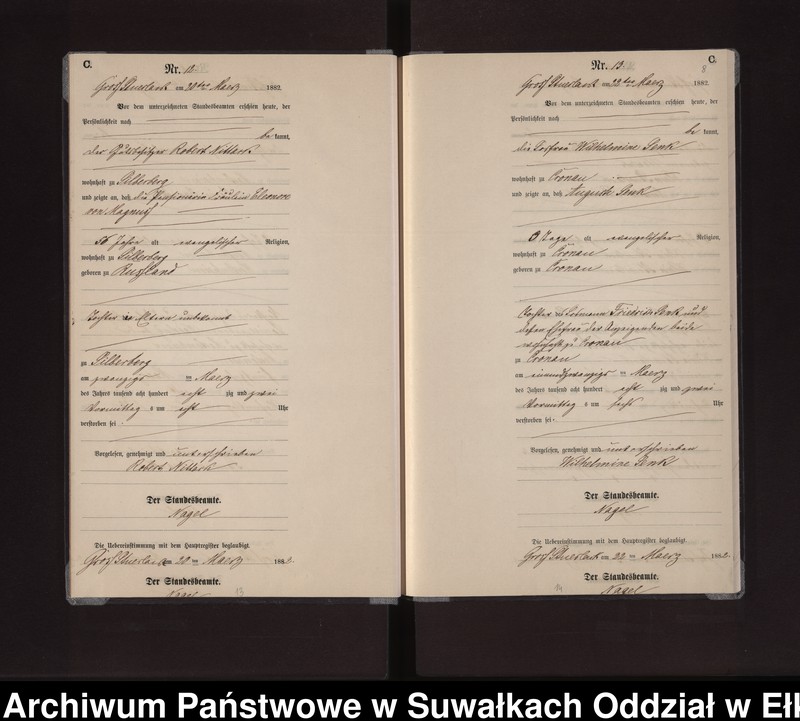 C.
Nr. 12.
Groß Stuerlack am 20ten Maerz 1882.
Vor dem unterzeichneten Standesbeamten erschien heute, der
Persönlichkeit nach
be kannt,
der Gutsbesitzer Robert Nitlack
wohnhaft zu Pilberberg
und zeigte an, daß die Pensionärin Fräulein Eleonore
von Magnus
Jahre alt evangelischer Religion,
wohnhaft zu Pilberberg
geboren zu Rußland
Tochter der Eltern unbekannt
zu Pilberberg
am zwanzigs ten Maerz
des Jahres tausend acht hundert acht zig und zwei
Vormittag s um acht Uhr
verstorben sei.
Vorgelesen, genehmigt und unterschrieben
Robert Nitlack
Der Standesbeamte.
Nagel
Die Uebereinstimmung mit dem Hauptregister beglaubigt.
Groß Stuerlack am 20 ten Maerz 1882.
Der Standesbeamte.
Nagel
13
C.
Nr. 13.
8
Groß Stuerlack am 22ten Maerz 1882.
Vor dem unterzeichneten Standesbeamten erschien heute, der
Persönlichkeit nach
be kannt,
die Losfrau Wilhelmine Penk
wohnhaft zu Cronau
und zeigte an, daß Auguste Penk
Tage alt evangelischer Religion,
wohnhaft zu Cronau
geboren zu Cronau
Tochter des Losmann Friedrich Penk und
dessen Ehefrau der Anzeigenden beide
wohnhaft zu Cronau
zu Cronau
am einundzwanzigs ten Maerz
des Jahres tausend acht hundert acht zig und zwei
Vormittag s um sechs Uhr
verstorben sei.
Vorgelesen, genehmigt und unterschrieben
Wilhelmine Penk
Der Standesbeamte.
Nagel
Die Uebereinstimmung mit dem Hauptregister beglaubigt.
Groß Stuerlack am 22 ten Maerz 1882.
Der Standesbeamte.
Nagel
14
Archiwum Państwowe w Suwałkach Oddział w Ełk